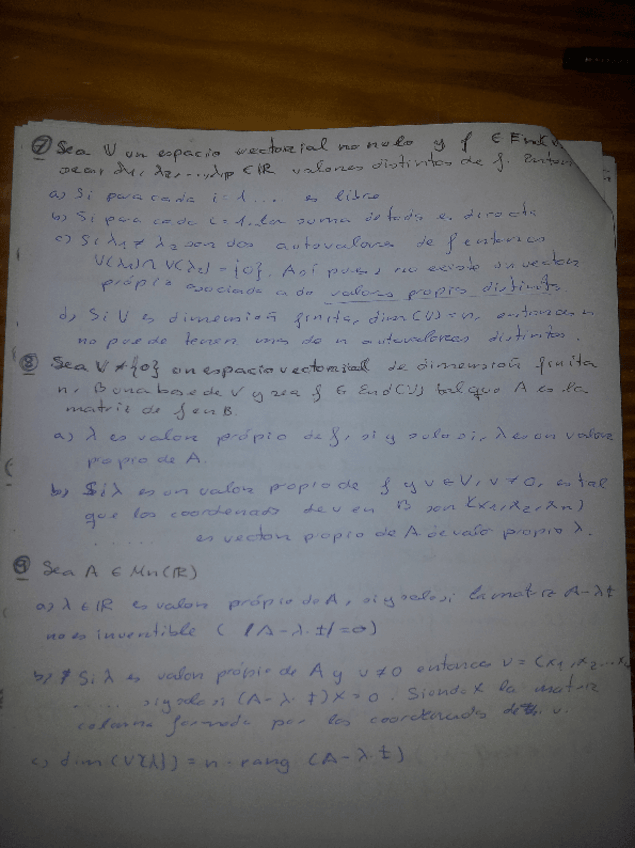 ⑦ Sea V un espacio vectorial no nulo y f ∈ End(V
sean λ1, λ2, ..., λp ∈ IR valores distintos de f. Enton
a) Si para cada i=1... es libre
b) Si para cada i=1.. la suma de todo es directa
c) Si λ1 ≠ λ2 son dos autovalores de f entonces
V(λ1) ∩ V(λ2) = {0}. Así pues, no existe un vector
própio asociado a do valores propios distintos
d) Si V es dimensión finita, dim(V) = n, entonces n
no puede tener más de n autovalores distintos.
⑧ Sea V ≠ {0} un espacio vectorial de dimensión finita
n, B una base de V y sea f ∈ End(V) tal que A es la
matriz de f en B.
a) λ es valor própio de f, si y solo si, λ es un valor
propio de A.
b) Si λ es un valor propio de f y v ∈ V, v ≠ 0, es tal
que las coordenadas de v en B son (x1, x2, xn)
...... es vector propio de A de valor propio λ.
⑨ Sea A ∈ Mn(IR)
a) λ ∈ IR es valor própio de A, si y solo si la matriz A-λI
no es invertible ( |A-λ·I|=0)
b) Si λ es valor própio de A y v≠0 entonces v = (x1, x2...x
...... si y solo si (A-λ·I)X=0. Siendo X la matriz
columna formada por las coordenadas de v.
c) dim(V{λ}) = n - rang (A-λ·I)